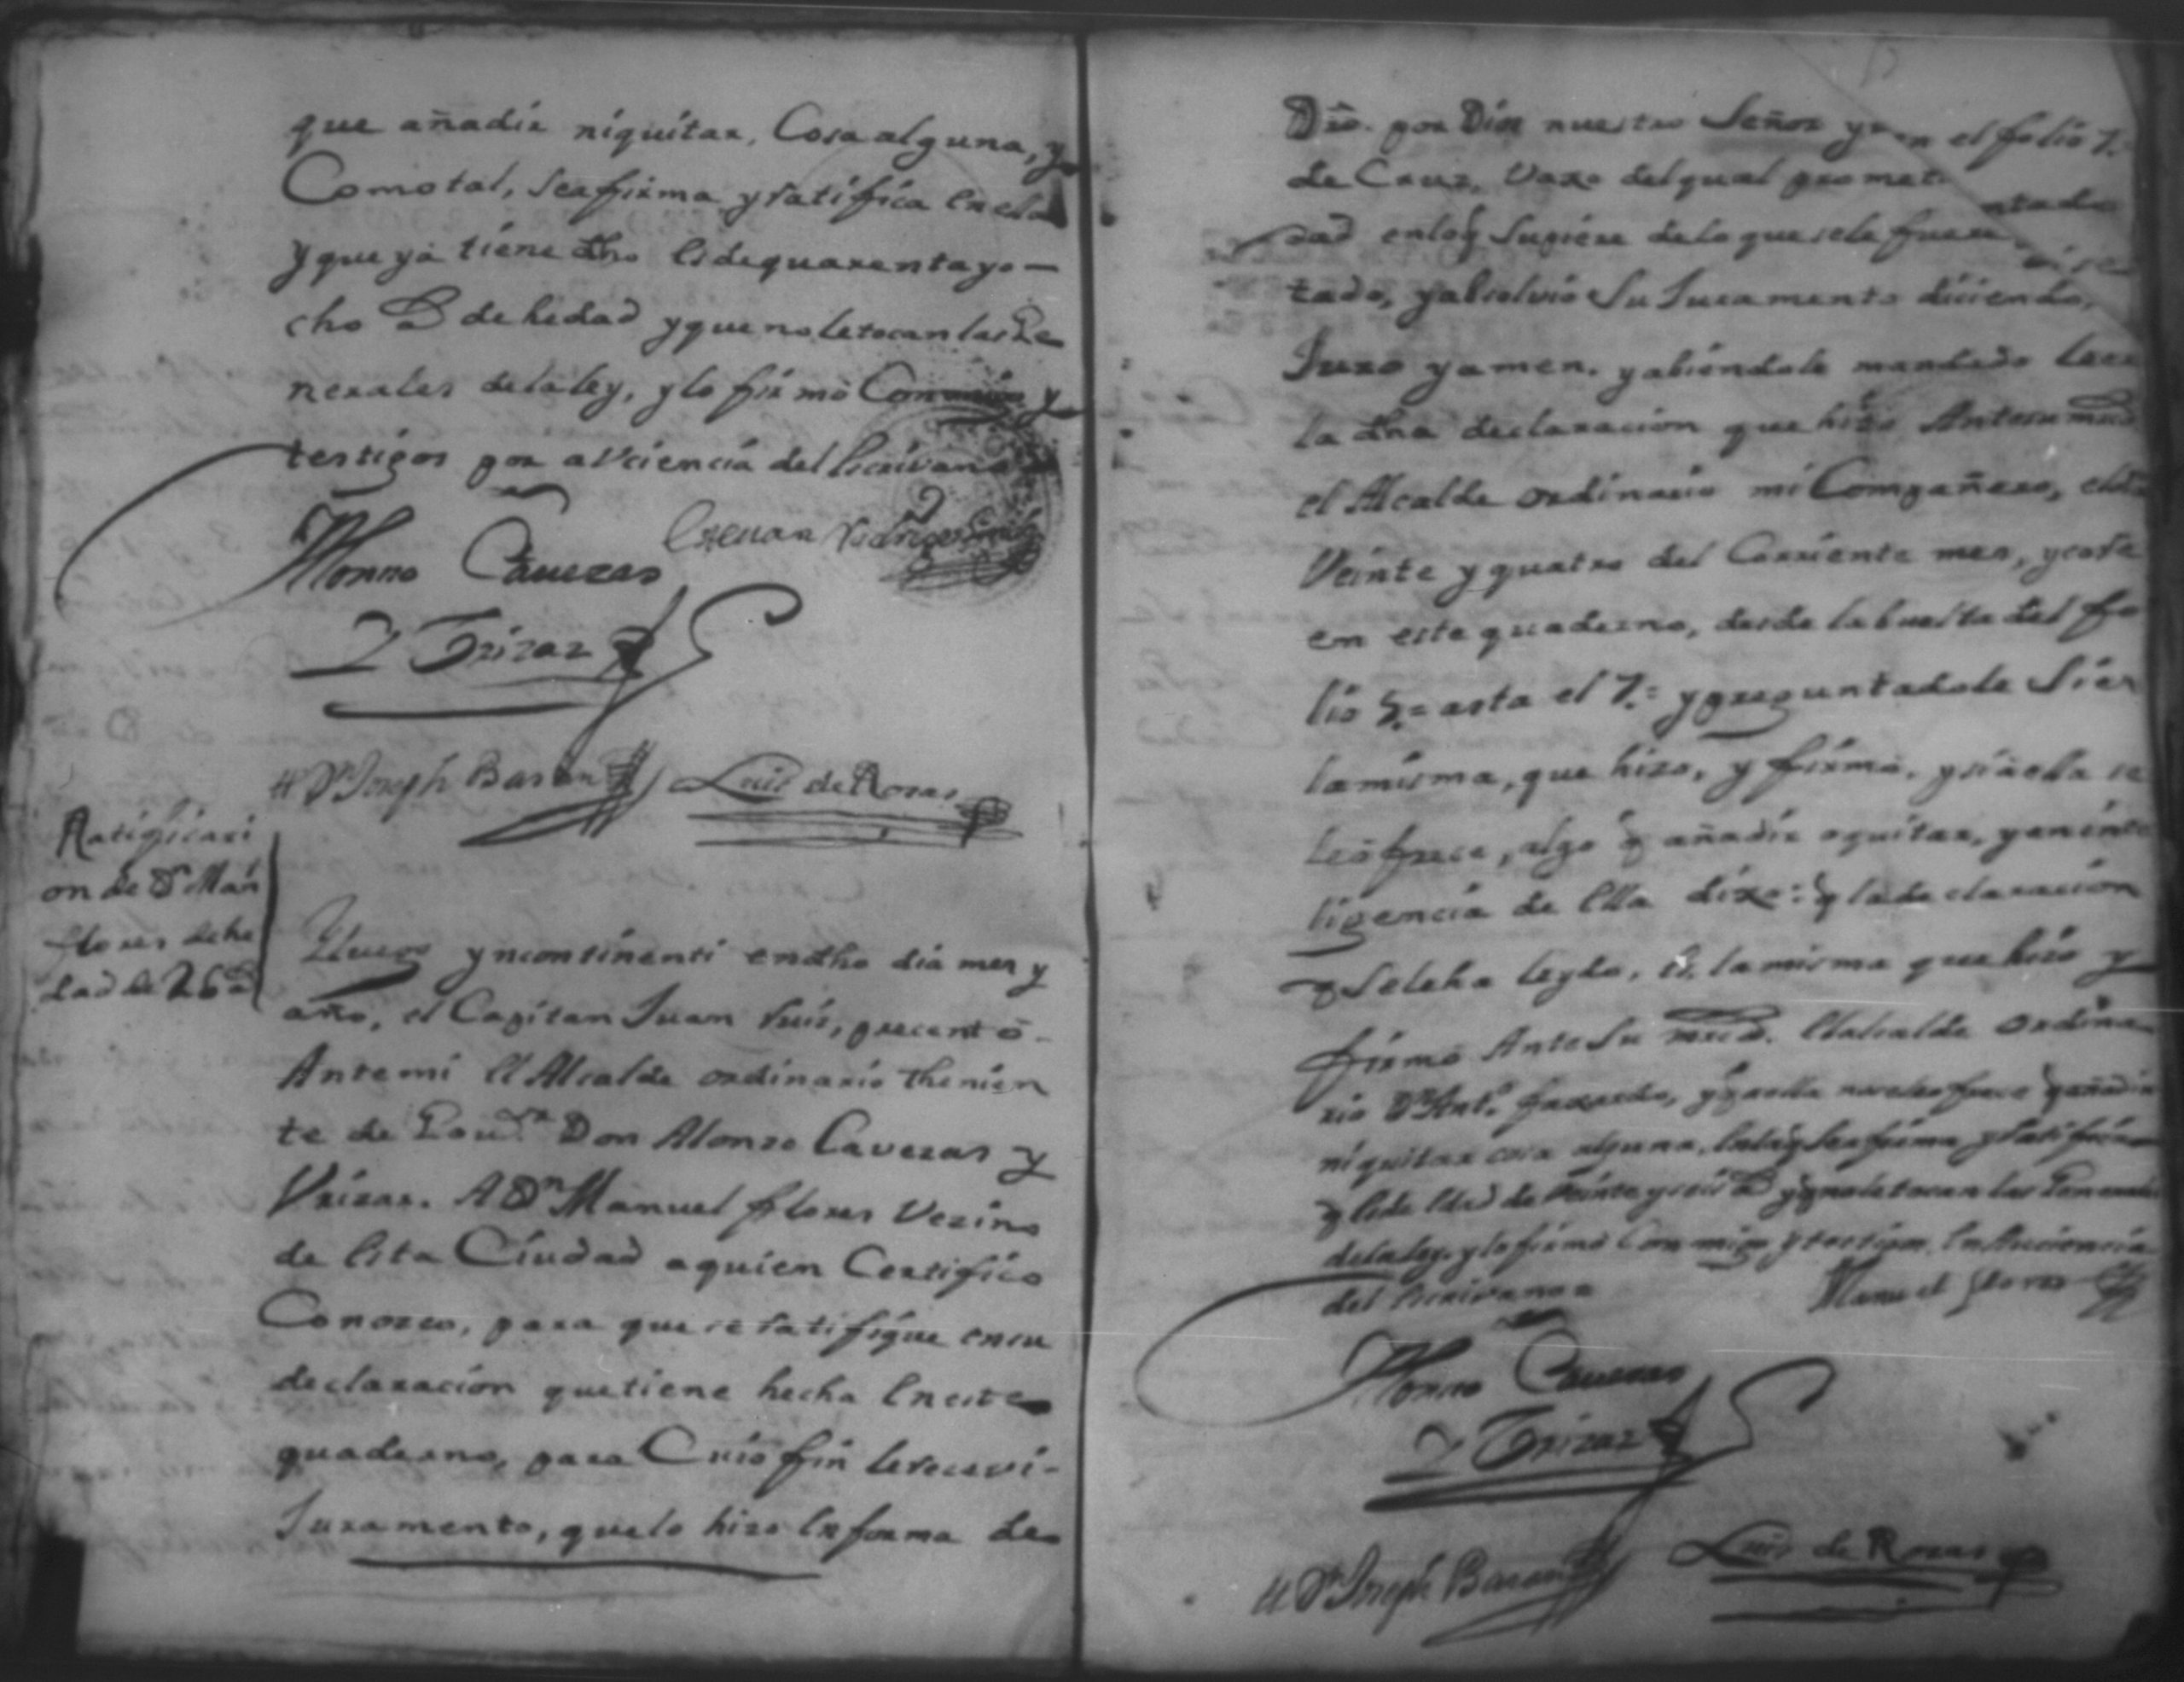 que añadir niquitar, Cosa alguna, y
Como tal, seafirma y ratifica en ela
y que ya tiene dho es de quarenta yo—
cho as de hedad y que no le tocan las Ge
nerales de la ley, y lo firmó Conmigo y
testigos por avciencia del Escrivano
Alonso Cavezas
y Vrizar
Dn Joseph Bazan
Luis de Rozas
Ratificaci
on de Dn Man
flores de he
dad de 26 as
Lluego yncontinenti en dho dia mes y
año, el Capitan Juan ruis, precentó
Ante mi El Alcalde ordinario thenien
te de Gour Don Alonso Cavezas y
Vrizar. A Dn Manuel flores Vezino
de Esta Ciudad a quien Certifico
Conozco, para que se ratifique en su
declaracion que tiene hecha En este
quaderno, para Cuio fin le receví
Juramento, que lo hizo En forma de
Dro. por Dios nuestro Señor y
de Cruz, Vaxo del qual promet
dad en lo q Supiere de lo que se le fuere
tado, y absolvio Su Juramento diciendo,
Juro y amen. y abiendole mandado leer
la dha declaracion que hizo Ante su mrd
el Alcalde ordinario mi Compañero, el dia
Veinte y quatro del Corriente mes, y corre
en este quaderno, desde la buelta del fo
lio 5.º asta el 7.º y preguntadole Si es
la misma, que hizo, y firmó, y si a ella se
le ofrece, algo q añadir o quitar, y en inte
ligencia de Ella dixo: q la declaracion
q Se le ha leydo, es, la misma que hizo y
firmó Ante Su mrd. El alcalde ordina
rio Dn Antº faxardo, y q a ella no se le ofrece q añadir
ni quitar cosa alguna, En la q Se afirma y Ratifica
q Es de Edad de Veinte y seis as y q no le tocan las Generales
de la ley, y lo firmó Conmigo y testigos En Auciencia
del Escrivano =
Manuel flores
Alonso Cavezas
y Vrizar
Dn Joseph Bazan
Luis de Rozas
en el folio 7.º